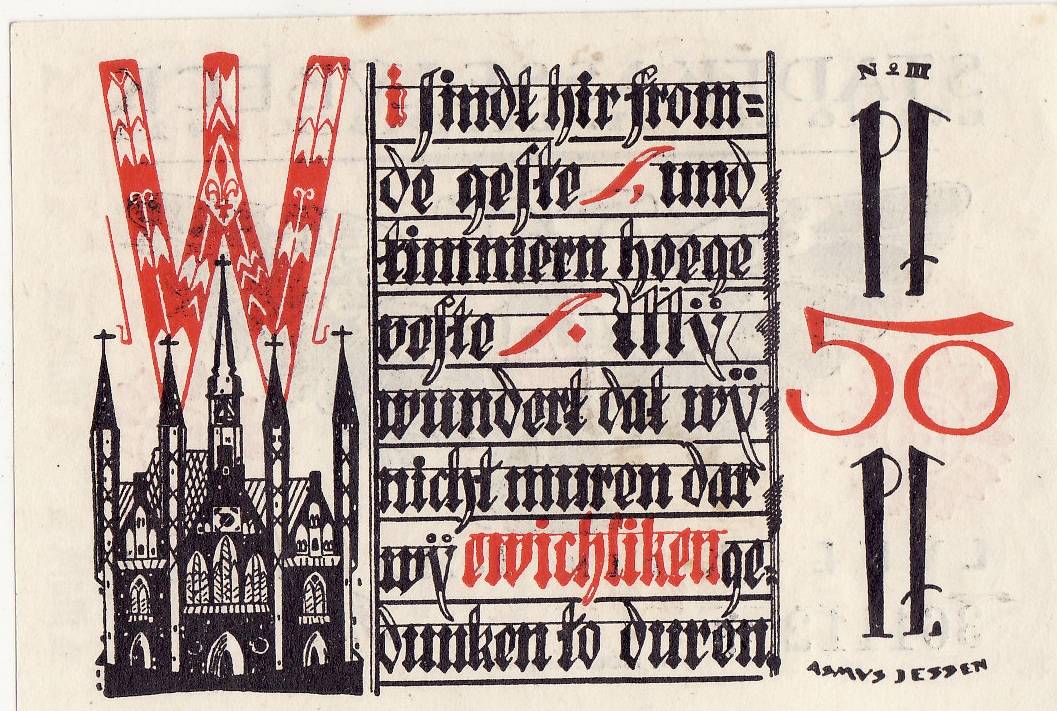 Wi sindt hir from=
de geste /. und
timmern hoege
veste /. Mÿ
wundert dat wÿ
nicht muren dar
wÿ ewichliken ge=
dunken to duren
No III
Pf
50
Pf
ASMVS JESSEN